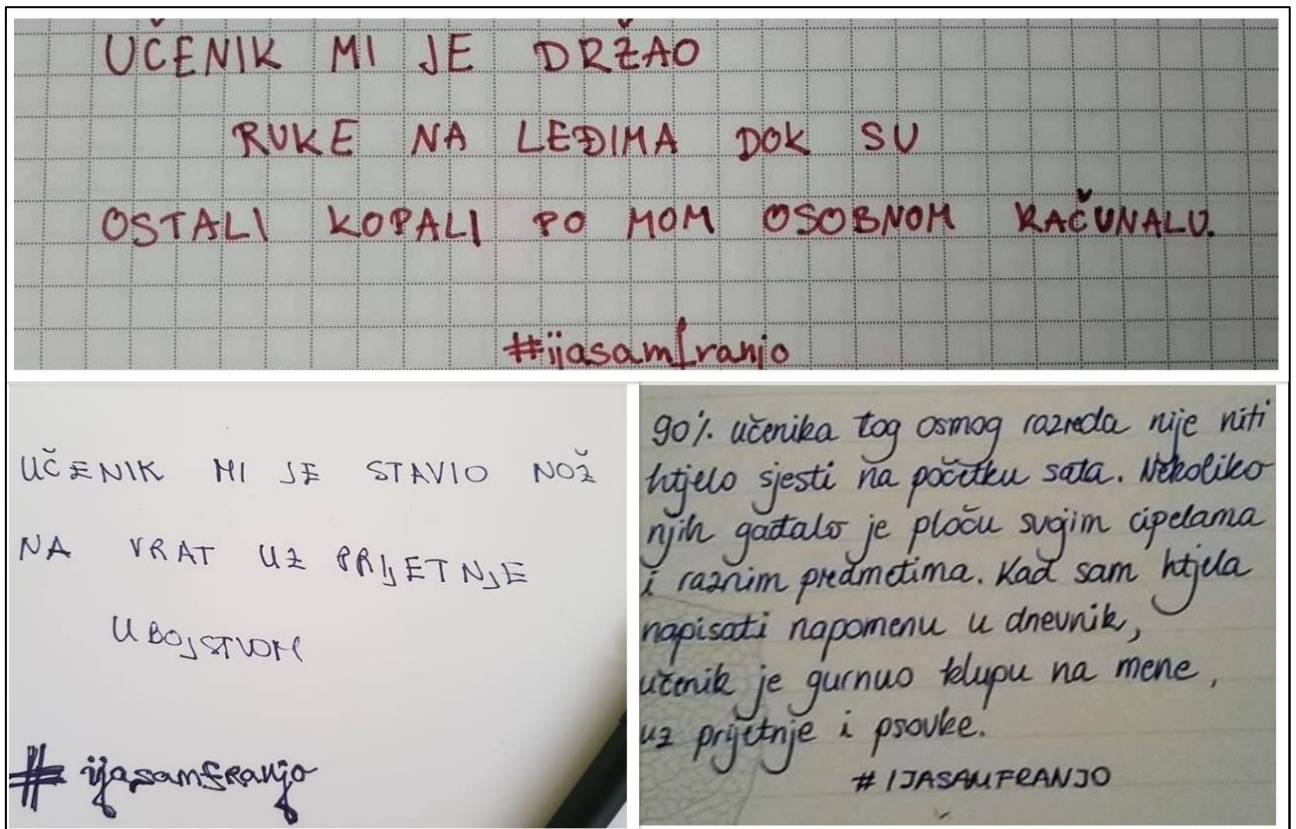 UČENIK MI JE DRŽAO
RUKE NA LEĐIMA DOK SU
OSTALI KOPALI PO MOM OSOBNOM RAČUNALU.
#ijasamfranjo
UČENIK MI JE STAVIO NOŽ
NA VRAT UZ PRIJETNJE
UBOJSTVOM
#ijasamfranjo
90% učenika tog osmog razreda nije niti
htjelo sjesti na početku sata. Nekoliko
njih gađalo je ploču svojim cipelama
i raznim predmetima. Kad sam htjela
napisati napomenu u dnevnik,
učenik je gurnuo klupu na mene,
uz prijetnje i psovke.
#IJASAMFRANJO